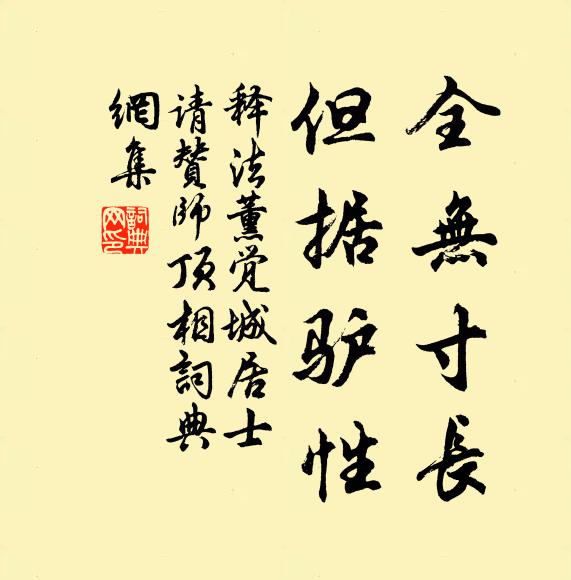 全無寸長
但据驴性
释法薰觉城居士
请赞師頂相詞典
網集
詞典
网印